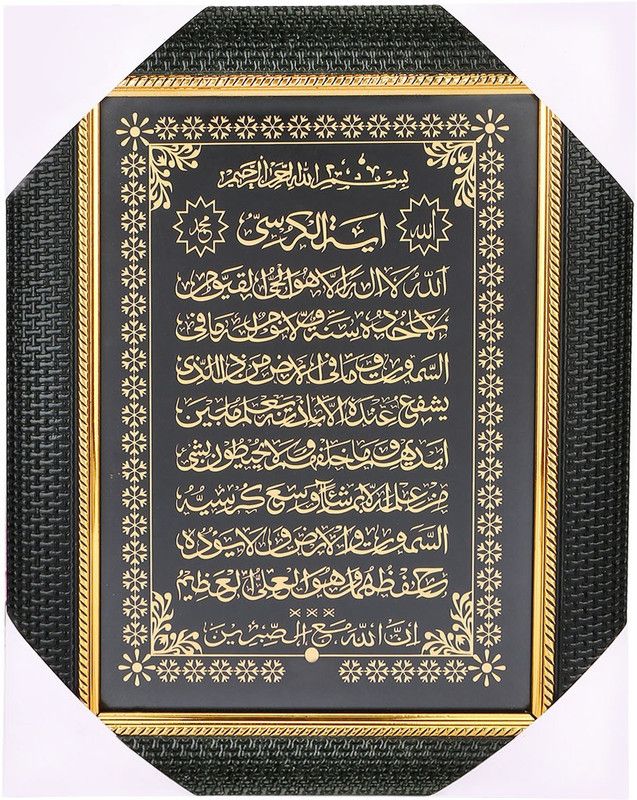 بسم الله الرحمن الرحيم
الله اية الكرسي محمد
الله لا اله الا هو الحي القيوم
لا تاخذه سنة ولا نوم له ما في
السموت وما في الارض من ذا الذي
يشفع عنده الا باذنه يعلم ما بين
ايديهم وما خلفهم ولا يحيطون بشئ
من علمه الا بما شاء وسع كرسيه
السموت والارض ولا يوده
حفظهما وهو العلي العظيم
ان الله مع الصبرين